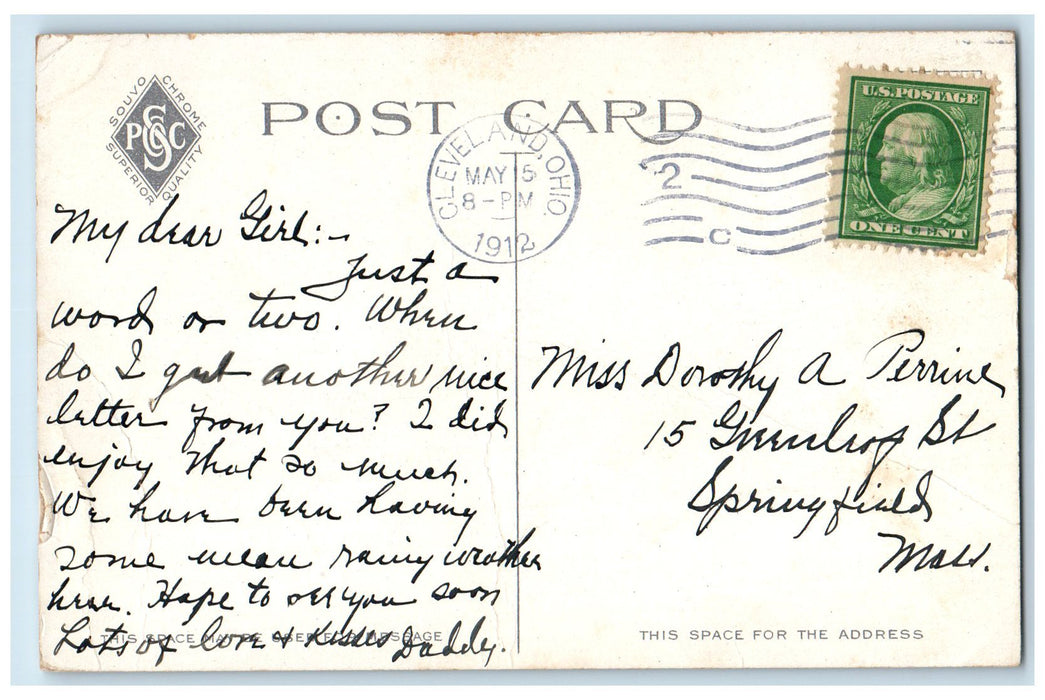 SOUVO CHROME
PSCC
SUPERIOR QUALITY
POST CARD
CLEVELAND, OHIO.
MAY 5
8-PM
1912
2
C
U.S. POSTAGE
ONE CENT
My dear Girl:-
Just a
word or two. When
do I get another nice
letter from you? I did
enjoy that so much.
We have been having
some mean rainy weather
here. Hope to see you soon
Lots of love & Kisses Daddy.
THIS SPACE MAY BE USED FOR MESSAGE
Miss Dorothy A Perrine
15 St
Springfield
Mass.
THIS SPACE FOR THE ADDRESS